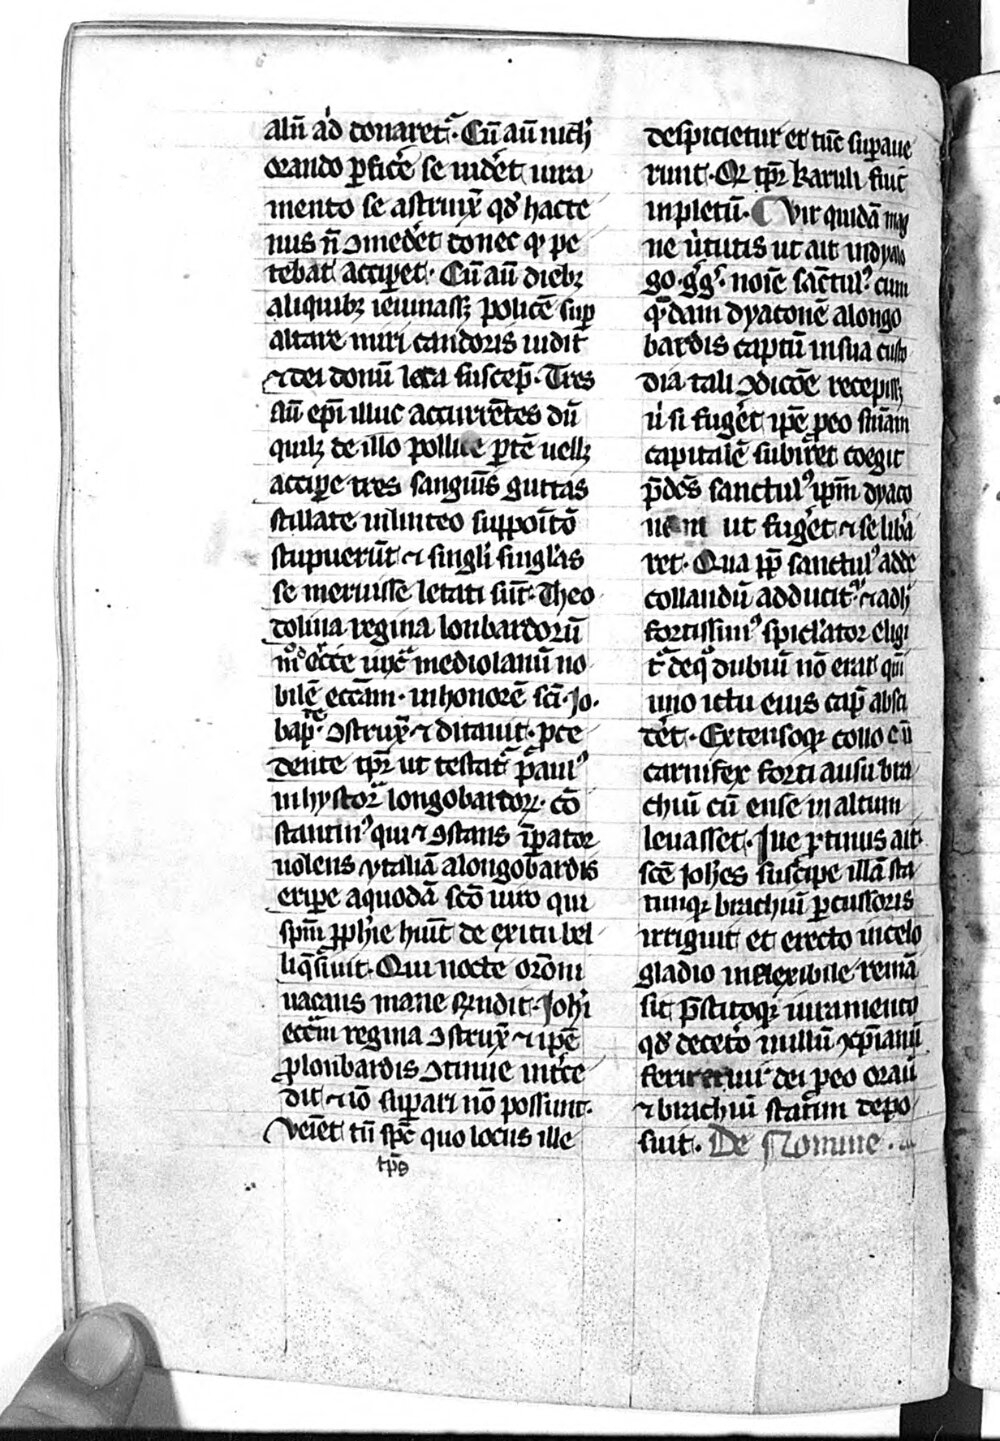 aliq̄d donaretᷓ. Cū aū nich̾
orando ꝑfice̾ se uide̾t iura
mento se astrinx̾ qd̾ hacte
nus n̄ ↄmede̾t donec qď pe
tebat acciꝑet. Cū aū diebꝫ
aliquibꝫ ieiunassꝫ policē suꝑ
altare miri candoris uidit
⁊ dei donū leta suscep̄. Tres
aū ep̄i illuc accurrētes dū
quilꝫ de illo pollice ꝑtē uellꝫ
acciꝑe tres sanguīs guttas
stillare inlinteo suppoītō
stupuerūt ⁊ singli̾ singl̾as
se meruisse letati sūt. Theo
dolina regina lonbardorū
mediolanū no
bilē ecc̄am. inhonorē sc̄i. Jo.
bap̄. ↄstrux̾ ⁊ ditauit. ꝓce
dente tp̄r ut testatᷓ p̄aulꝰ
inhystorᷓ longobardoꝝ. cō
stantinꝰ qui ⁊ ↄstans īꝑator
uolens ytaliā alongobardis
eriꝑe aquodā sc̄o uiro qui
sp̄m ꝓph̾ie hūit de exitu bel
li q̄siuit. Qui nocte orōni
uacans mane rn̄dit. Joh̾i
ecc̄am regina ↄstrux̾ ⁊ ip̄e
ꝓlonbardis ↄtinue int̾ce
dit ⁊ iō suꝑari nō possunt.
Veīet tn̄ sp̄c quo locus ille
tp̄s
despicietur et tūc suꝑaue
runt. Qꝫ tp̄r karuli fuit
inpletū. Vir quidā mag
ne u̾tutis ut ait indyalo
go. gᷓgꝰ. noīe sāctulꝰ cum
q̄dam dyaconē alongo
bardis captū insua custo
dia tali ↄdicōe recepissꝫ
ut si fuge̾t ip̄e ꝓeo sn̄iam
capitalē subiret coegit
p̄dc̄s sanctulꝰ ip̄m dyaco
nem ut fuge̾t ⁊ se lib̾a
ret. Qua pp̄ sanctulꝰ adde
collandū adducitᷓ ⁊ adh̾
fortissimꝰ spicl̾ator eligi
tᷓ deqͦ dubiū nō erat qn̄
uno ictu eius cap̄ absci
de̾t. Extensoqꝫ collo cū
carnifex forti ausu bra
chiū cū ense in altum
leuasset. Ille ꝓtinus ait.
sc̄e Joh̾es suscipe illā sta
timqꝫ brachiū ꝑcussoris
irriguit et erecto incelo
gladio inflexibile remā
sit p̄stitoqꝫ iuramento
qd̾ decete̾o nullū xp̄ianū
feriret uir dei ꝓeo orauī
⁊ brachiū statim depo
suit. De Nomine.